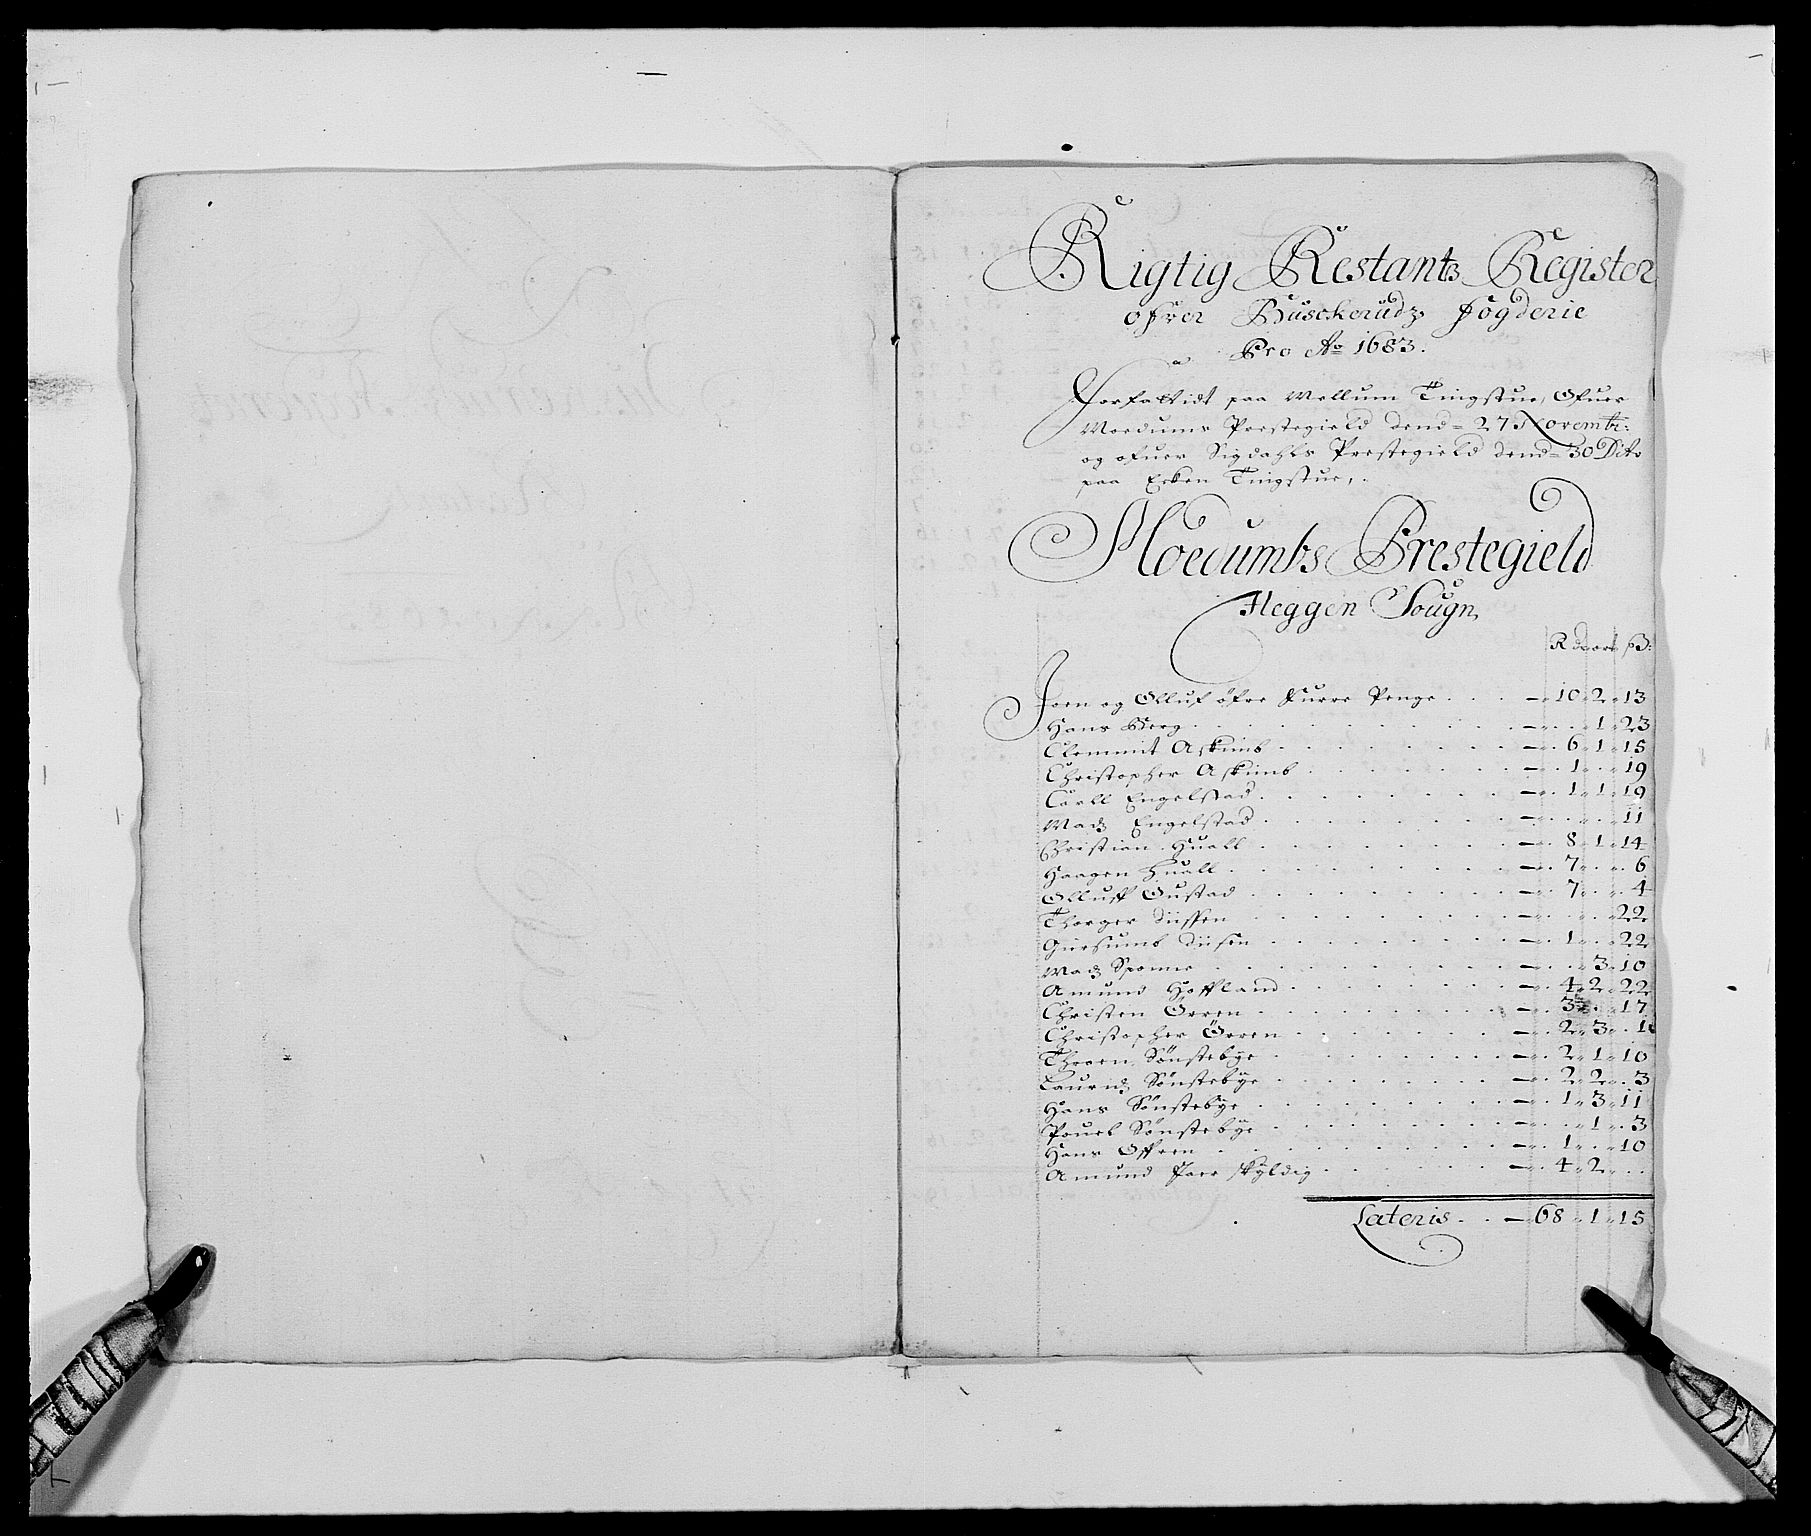 Rigtig Restantz Register
öfver Büsckerüdz fögderie
Pro Ao 1683.
Forfattidt paa Mellum Tingstue, Ofuer
Moedums Prestegield dend= 27 Novembr:
og ofuer Sigdahls Prestegield dend= 30 Dito
paa Ecken Tingstue,.
Moedumbs Prestegield
Heggen Sougn
Rd ort ß:
Joen og Olluf öfre Furre Penge . . . — 10 „ 2 „ 13
Hans Berg . . . — . „ 1 „ 23
Clemmit Askimb . . . — 6 „ 1 „ 15
Christopher Askimb . . . — 1 „ . „ 19
Carll Engelstad . . . — 1 „ 1 „ 19
Madz Engelstad . . . — . „ . „ 11
Christian Huall . . . — 8 „ 1 „ 14
Haagen Huall . . . — 7 „ . „ 6
Olluff Gustad . . . — 7 „ . „ 4
Thorger Diissen . . . — . „ . „ 22
Giersumb Diisen . . . — 1 „ . „ 22
Madz Sponne . . . — . „ 3 „ 10
Amund Hoffland . . . — 4 „ 2 „ 22
Christen Öeren . . . — 3 „ . „ 17
Christopher Öeren . . . — 2 „ 3 „
Throen Sönstebye . . . — 2 „ 1 „ 10
Lauridz Sönstebye . . . — 2 „ 2 „ 3
Hans Sönstebye . . . — 1 „ 3 „ 11
Pouel Sönstebye . . . — . „ 1 „ 3
Hans Offren . . . — 1 „ . „ 10
Amund Paer skyldig . . . — 4 „ 2 „ .
Lateris . . — 68 „ 1 „ 15